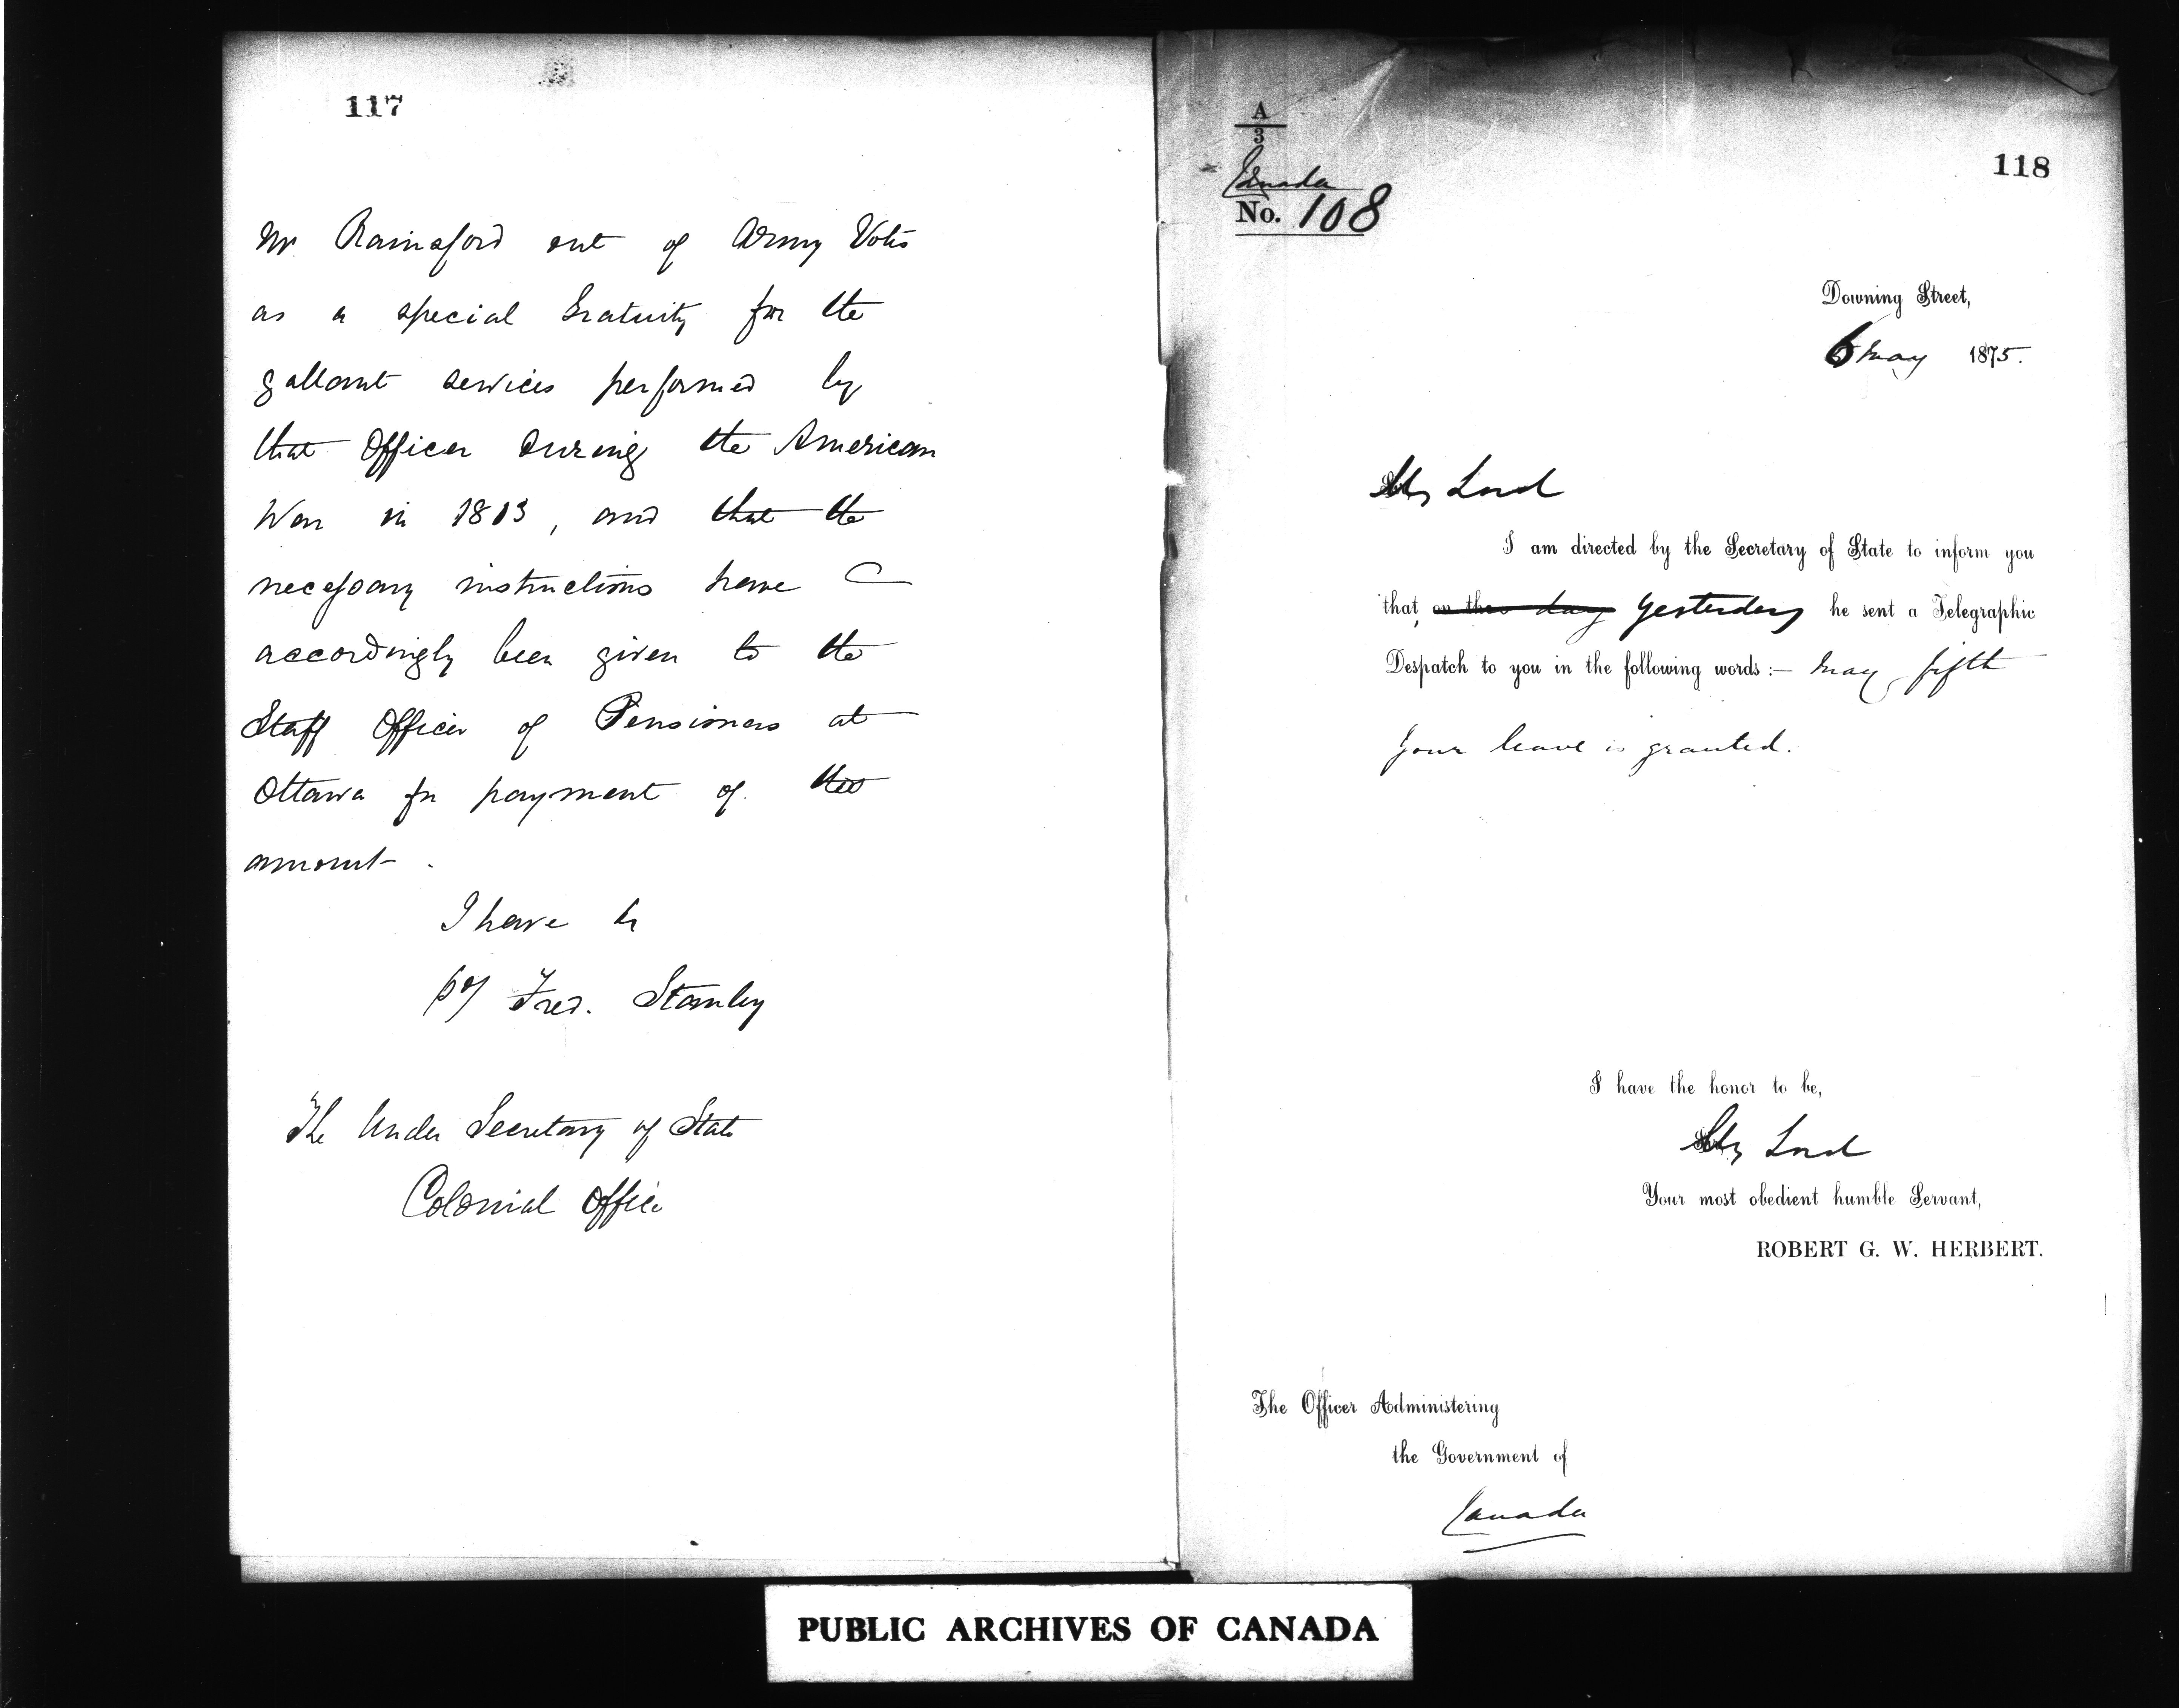 117
Mr Rainsford out of Army Votes
as a special Gratuity for the
gallant services performed by
that Officer during the American
War in 1813, and that the
necessary instructions have
accordingly been given to the
Staff Officer of Pensioners at
Ottawa for payment of this
amount.
I have &c
Fred. Stanley
The Under Secretary of State
Colonial Office
A
3
Canada
No. 108
118
Downing Street,
6 May 1875.
My Lord
I am directed by the Secretary of State to inform you
that, on the day Yesterday he sent a Telegraphic
Despatch to you in the following words:— May fifth
Your leave is granted.
I have the honor to be,
My Lord
Your most obedient humble Servant,
ROBERT G. W. HERBERT.
The Officer Administering
the Government of
Canada
PUBLIC ARCHIVES OF CANADA